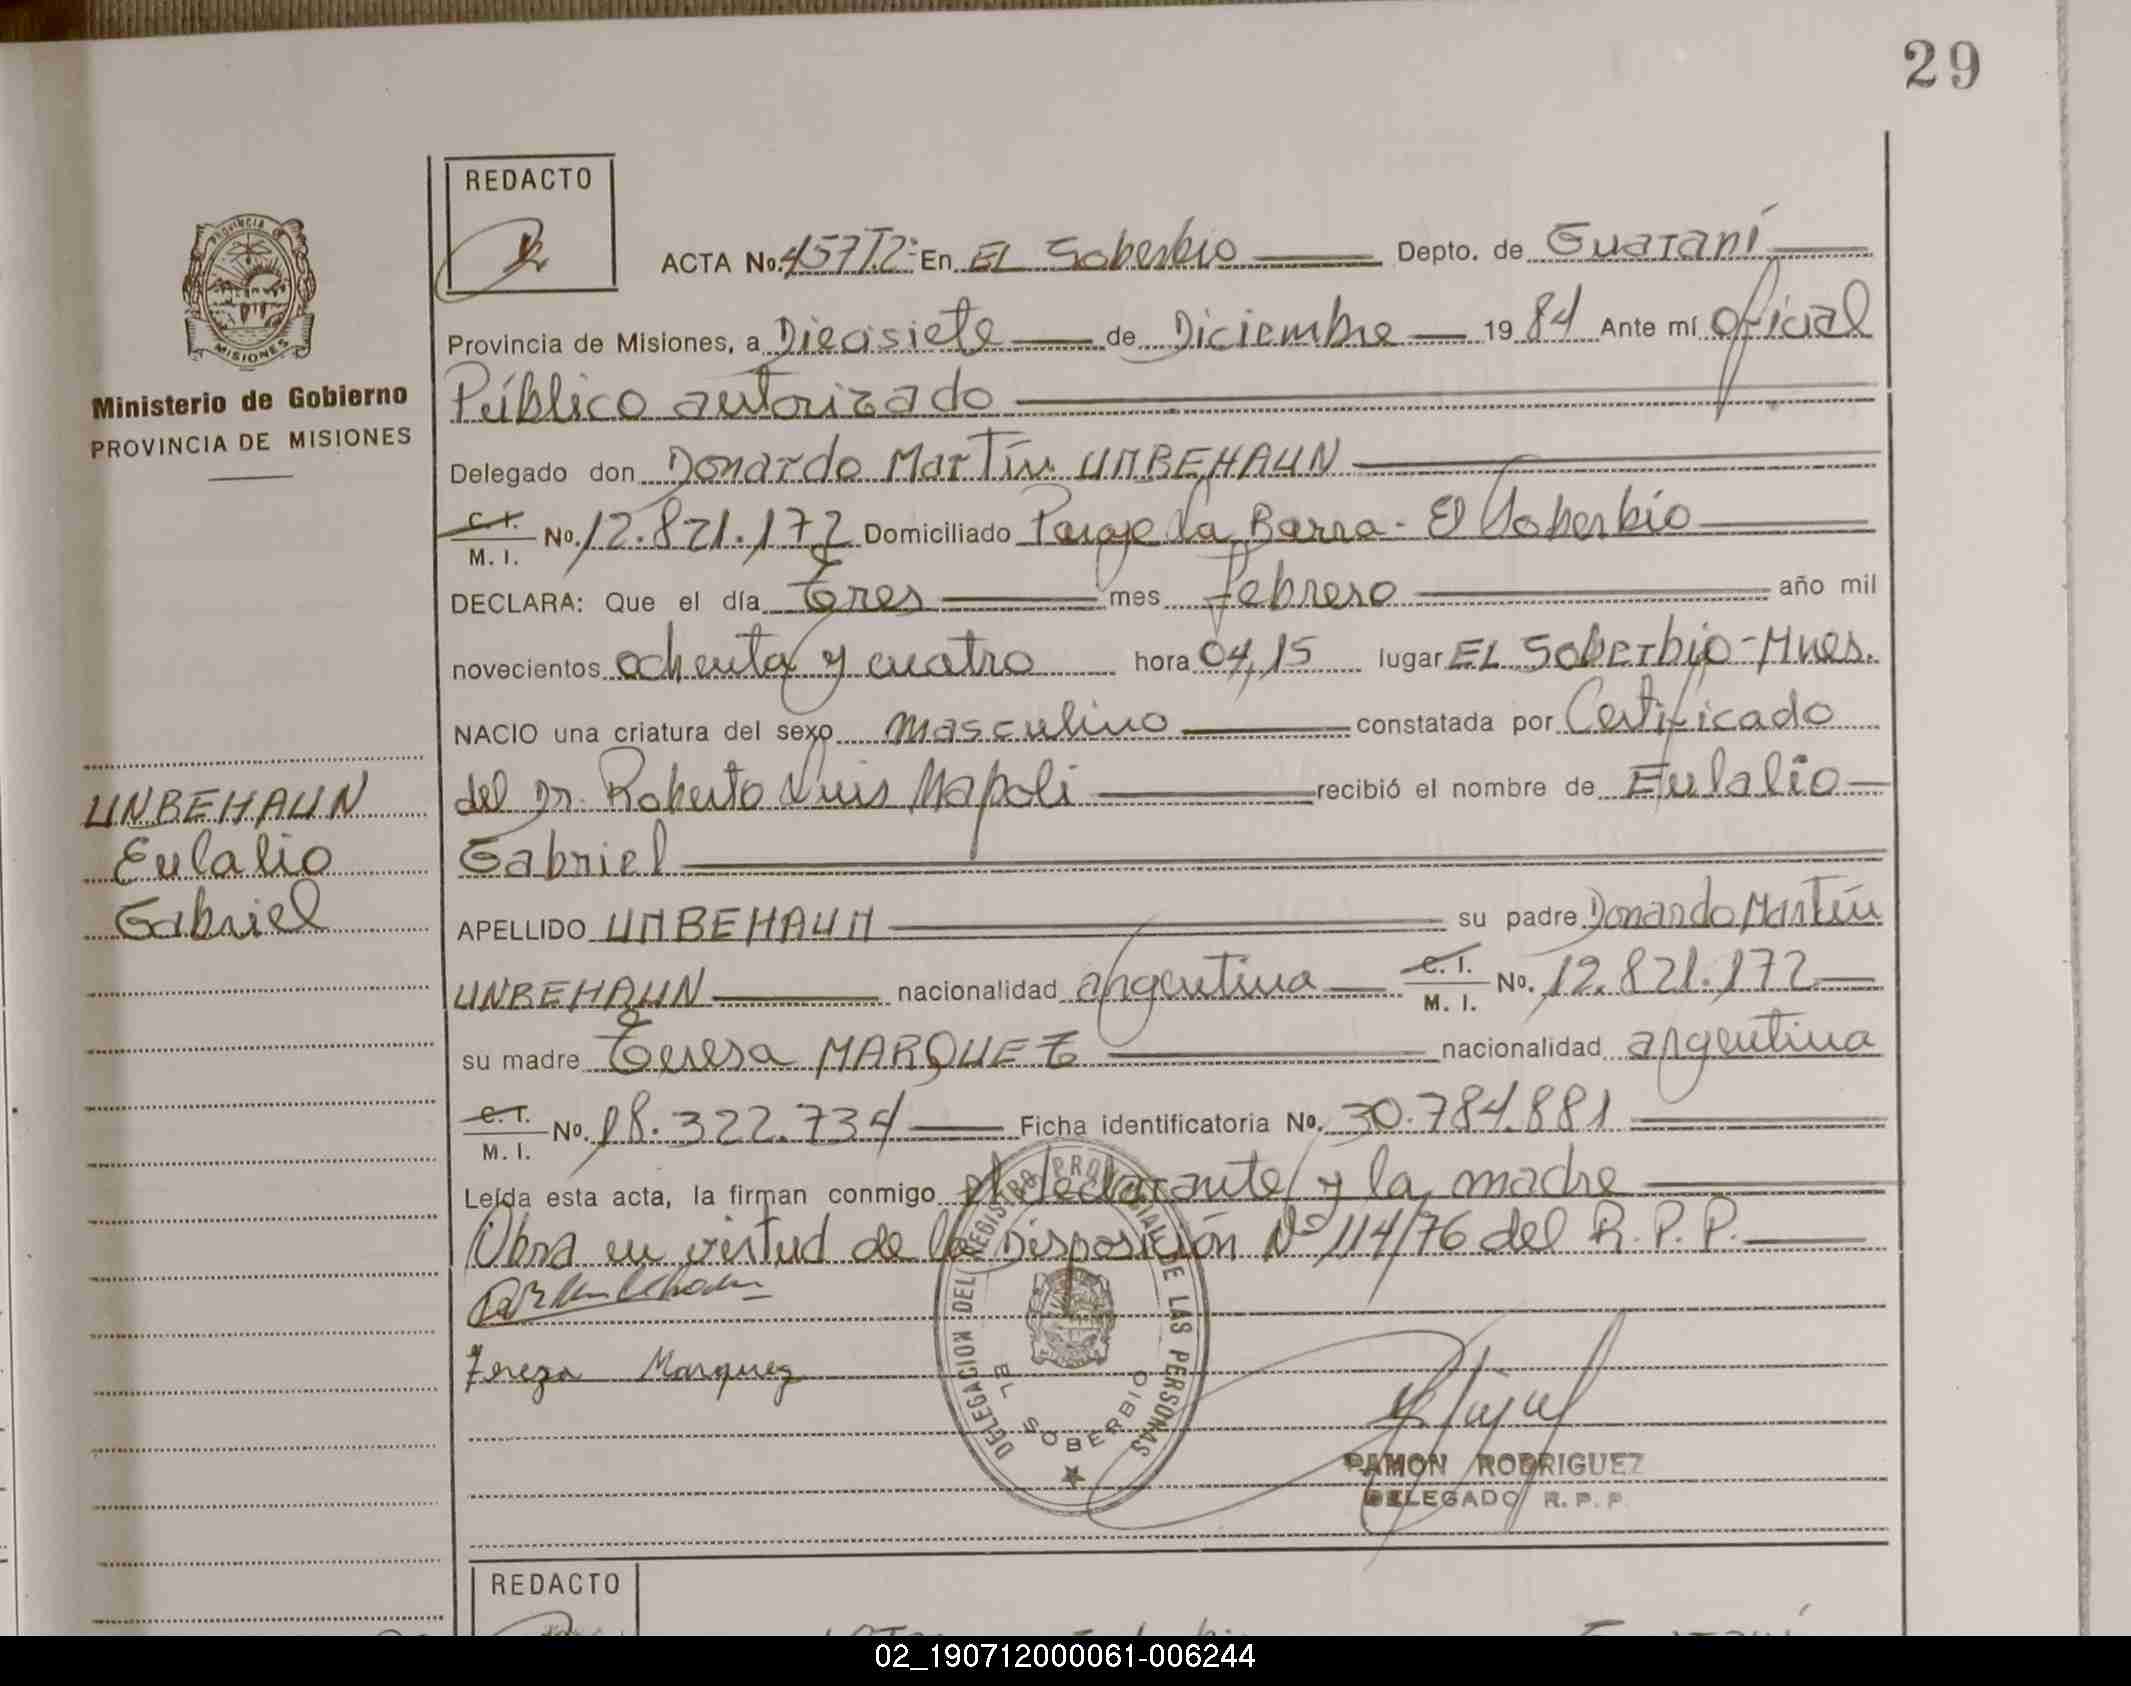 29
REDACTO
PROVINCIA DE MISIONES
ACTA No. 457T.2: En EL Soberbio Depto. de Guaraní
Provincia de Misiones, a Diecisiete de Diciembre 1984 Ante mí Oficial
Público autorizado
Delegado don Donardo Martín UNBEHAUN
C. I. M. I. No. 12.821.172 Domiciliado Paraje La Barra - El Soberbio
DECLARA: Que el día Tres mes febrero año mil
novecientos ochenta y cuatro hora 04,15 lugar EL Soberbio - Mnes.
NACIO una criatura del sexo masculino constatada por Certificado
del Dr. Roberto Luis Napoli recibió el nombre de Eulalio
Gabriel
APELLIDO UNBEHAUN su padre Donardo Martín
UNBEHAUN nacionalidad argentina C. I. M. I. No. 12.821.172
su madre Teresa MARQUEZ nacionalidad argentina
C. I. M. I. No. 18.322.734 Ficha identificatoria No. 30.784.881
Leída esta acta, la firman conmigo el declarante y la madre
Obra en virtud de la Disposición Nº 114/76 del R.P.P.
Tereza Marquez
DELEGACION DEL REGISTRO PROVINCIAL DE LAS PERSONAS
EL SOBERBIO
RAMON RODRIGUEZ
DELEGADO R. P. P.
Ministerio de Gobierno
PROVINCIA DE MISIONES
UNBEHAUN
Eulalio
Gabriel
REDACTO
02_190712000061-006244